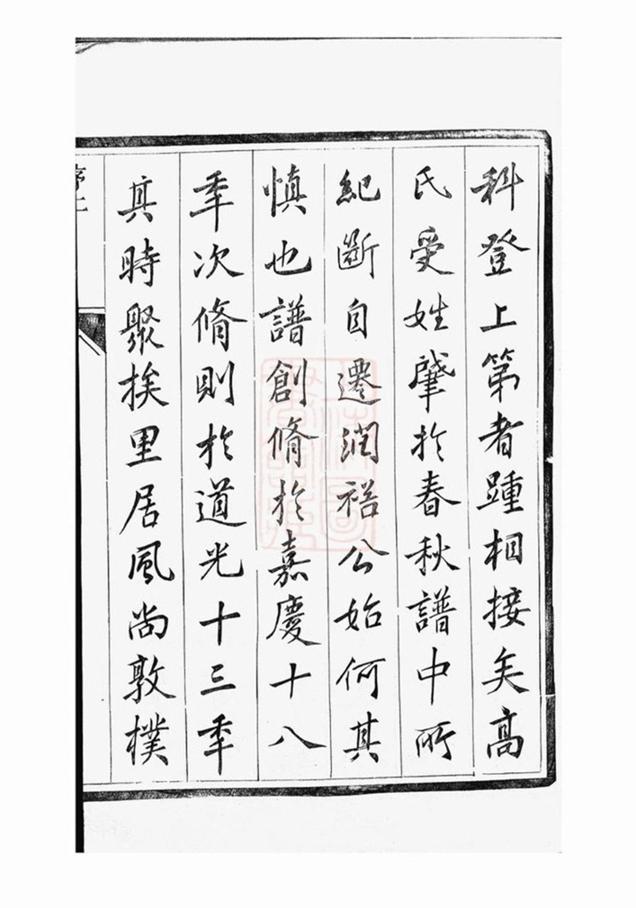 科登上第者踵相接矣高
氏受姓肇扵春秋譜中所
紀斷自遷润裕公始何其
慎也譜創脩扵嘉慶十八
秊次脩則扵道光十三秊
其時聚族里居風尚敦樸
序二